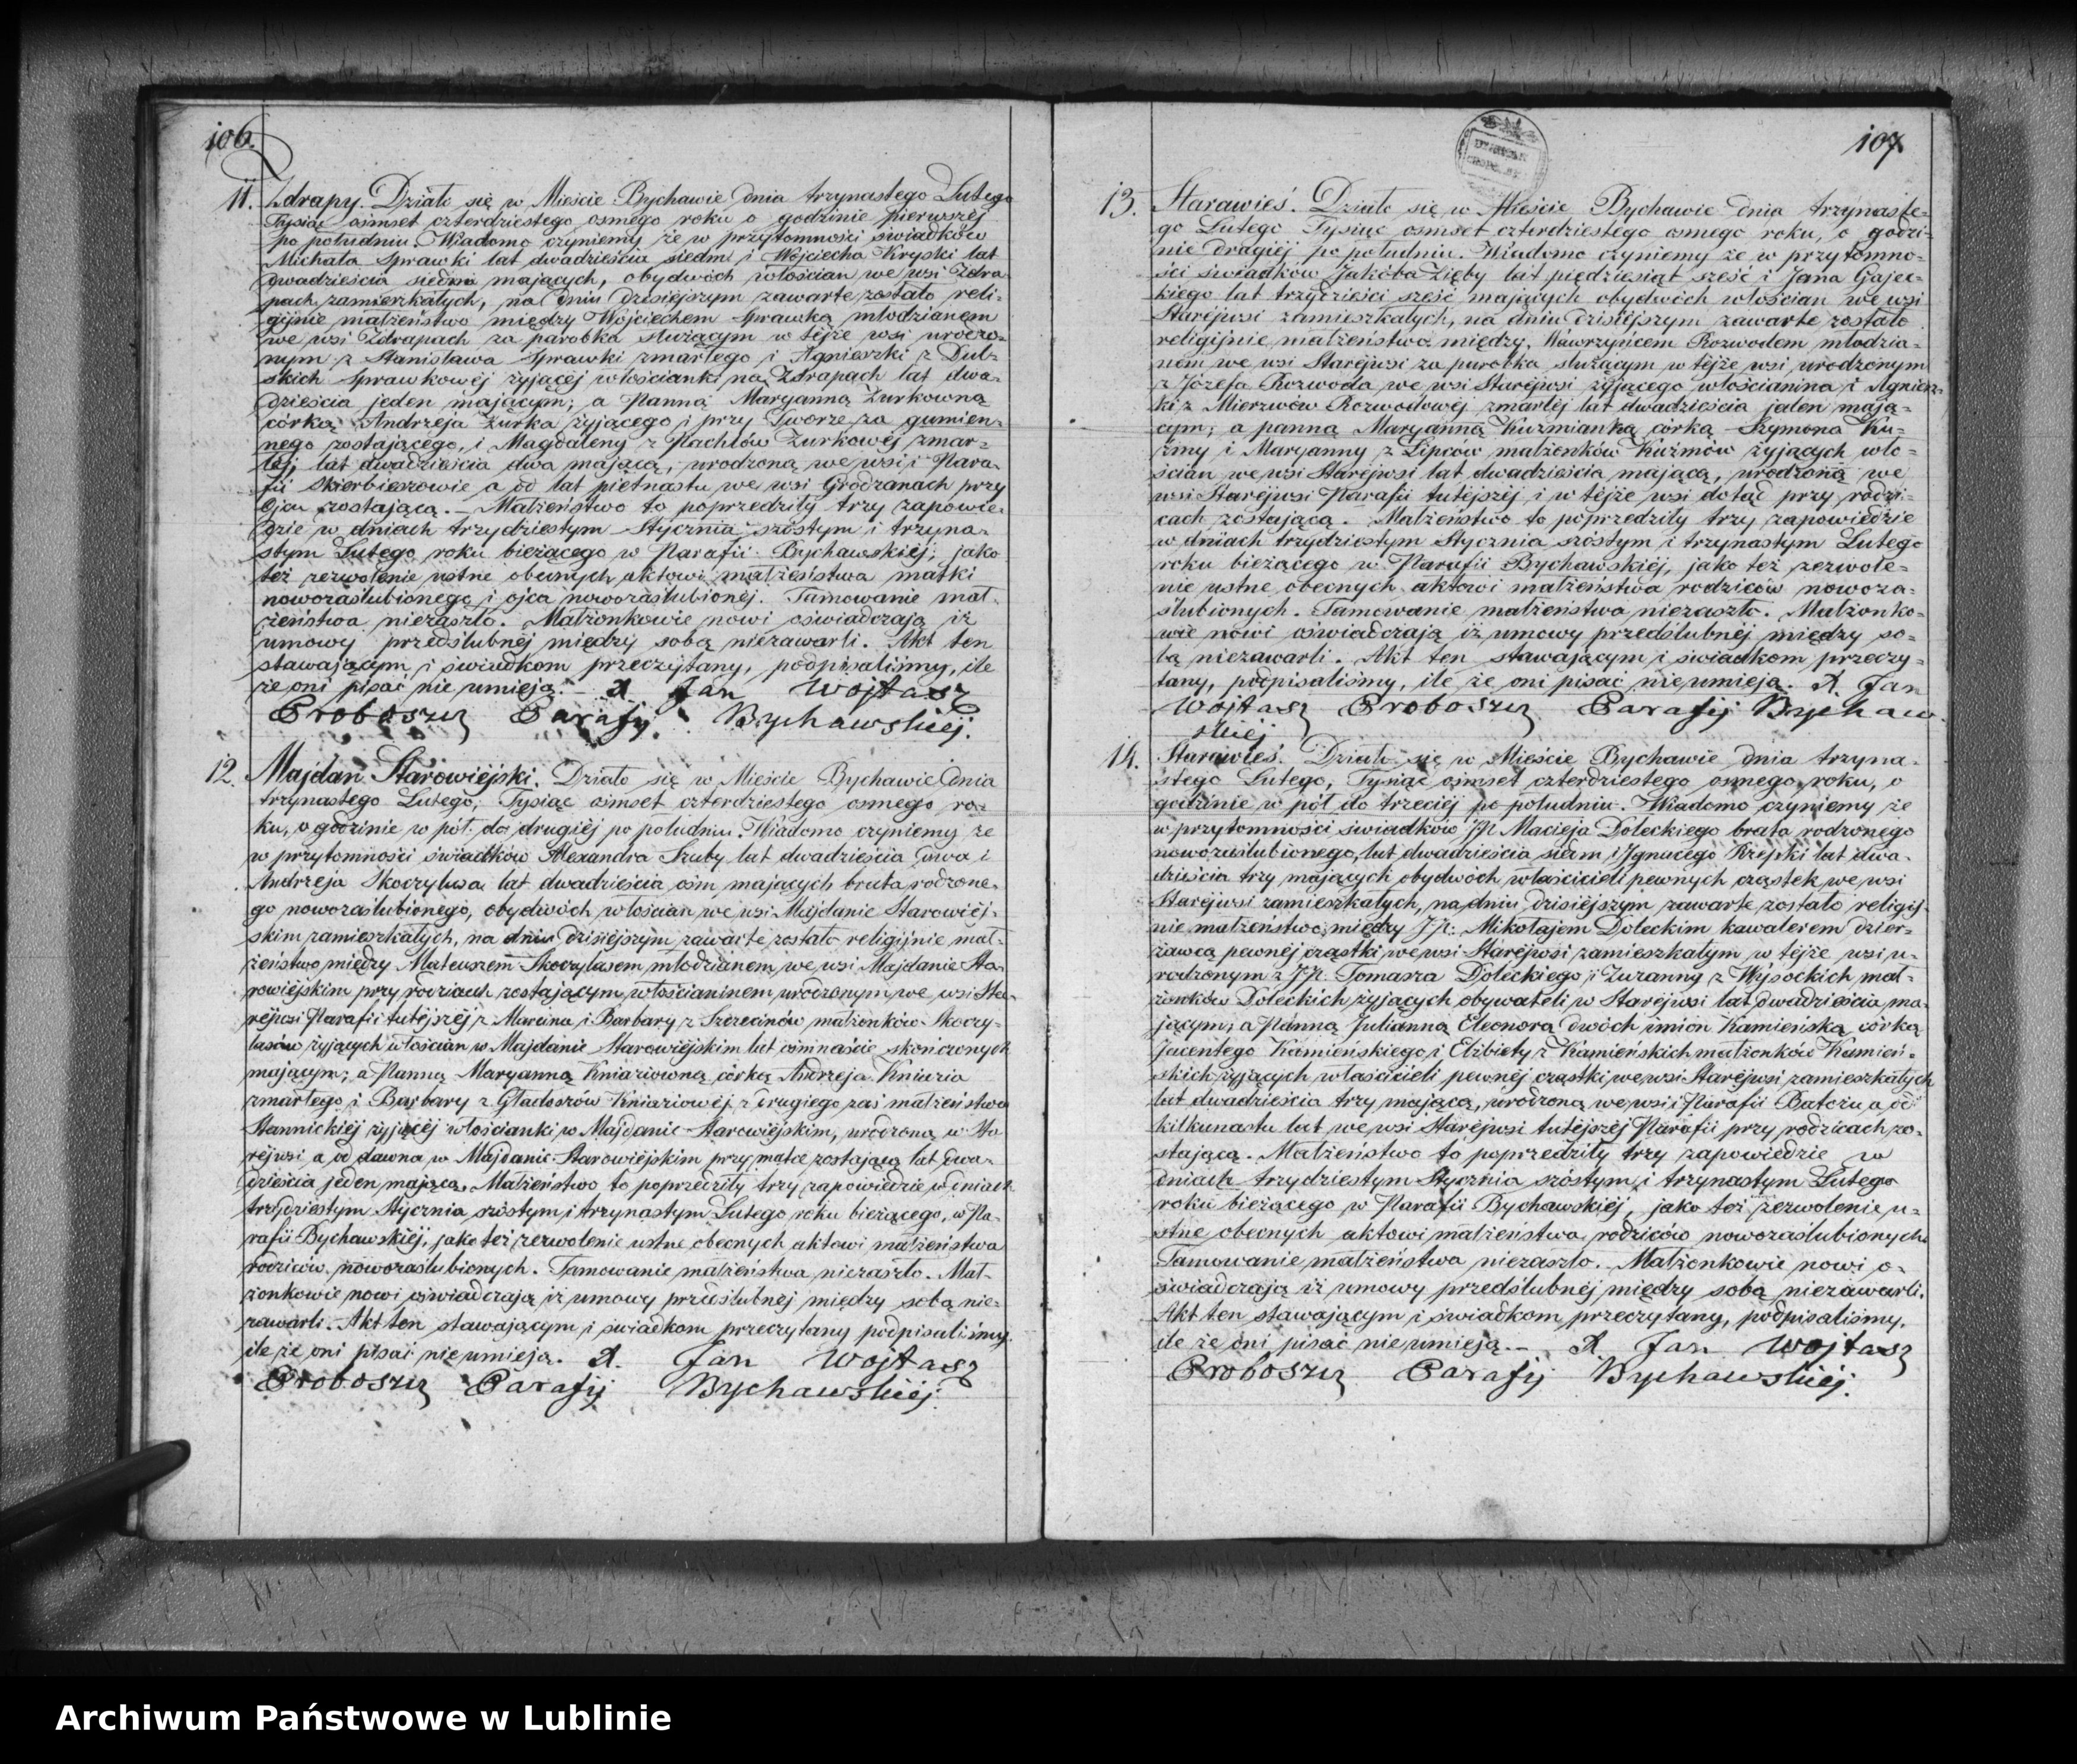 106.
11. Zdrapy. Działo się w Mieście Bychawie dnia trzynastego Lutego
Tysiąc ośmset czterdziestego osmego roku o godzinie pierwszej
po południu. Wiadomo czyniemy że w przytomności świadków
Michała Sprawki lat dwadzieścia siedm i Wojciecha Kryski lat
dwadzieścia siedm mających, obydwóch włościan we wsi Zdra-
pach zamieszkałych, na dniu dzisiejszym zawarte zostało reli-
gijnie małżeństwo między Wojciechem Sprawką młodzianem
we wsi Zdrapach za parobka służącym w tejże wsi urodzo-
nym z Stanisława Sprawki zmarłego i Agnieszki z Dub-
skich Sprawkowéj żyjącéj włościanki na Zdrapach lat dwa-
dzieścia jeden mającym; a Panną Maryanną Żurkowną
córką Andrzeja Żurka żyjącego i przy Dworze za gumien-
nego zostającego, i Magdaleny z Pachlów Żurkowéj zmar-
łéj, lat dwadzieścia dwa mającą, urodzoną we wsi i Para-
fii Skierbieszowie a od lat pietnastu we wsi Grodzanach przy
ojcu zostającą. – Małżeństwo to poprzedziły trzy zapowie-
dzie w dniach trzydziestym Stycznia szóstym i trzyna-
stym Lutego roku bieżącego w Parafii Bychawskiéj; jako
też zezwolenie ustne obecnych aktowi małżeństwa matki
nowozaślubionego i ojca nowozaślubionéj. Tamowanie mał-
żeństwa niezaszło. Małżonkowie nowi oświadczają iż
umowy przedślubnéj między sobą niezawarli. Akt ten
stawającym i świadkom przeczytany, podpisaliśmy, ile
że oni pisać nie umieją. – X. Jan Wojtasz
Proboszcz Parafij Bychawskiéj.
12. Majdan Starowiejski. Działo się w Mieście Bychawie dnia
trzynastego Lutego, Tysiąc ośmset czterdziestego osmego ro-
ku, o godzinie w pół do drugiéj po południu. Wiadomo czyniemy że
w przytomności świadków Alexandra Szuby lat dwadzieścia dwa i
Andrzeja Skoczylasa lat dwadzieścia ośm mających brata rodzone-
go nowozaślubionego, obydwóch włościan we wsi Majdanie Starowiéj-
skim zamieszkałych, na dniu dzisiejszym zawarte zostało religijnie mał-
żeństwo między Mateuszem Skoczylasem młodzianem we wsi Majdanie Sta-
rowiejskim przy rodzicach zostającym włościaninem urodzonym we wsi Sta-
réjwsi Parafii tutéjszéj z Marcina i Barbary z Szczecinów małżonków Skoczy-
lasów żyjących włościan w Majdanie Starowiejskim lat ośmnaście skończonych
mającym; a Panną Maryanną Kniaziowną córką Andrzeja Kniazia
zmarłego i Barbary z Gładoszów Kniaziowéj z drugiego zaś małżeństwa
Stannickiéj żyjącéj włościanki w Majdanie Starowiejskim, urodzoną w Sta
réjwsi a od dawna w Majdanie Starowiejskim przy matce zostającą lat dwa-
dzieścia jeden mającą. Małżeństwo to poprzedziły trzy zapowiedzie w dniach
trzydziestym Stycznia szóstym i trzynastym Lutego roku bieżącego, w Pa-
rafii Bychawskiéj, jako też zezwolenie ustne obecnych aktowi małżeństwa
rodziców nowozaślubionych. Tamowanie małżeństwa niezaszło. Mał-
żonkowie nowi oświadczają iż umowy przedślubnéj między sobą nie-
zawarli. Akt ten stawającym i świadkom przeczytany podpisaliśmy.
ile że oni pisać nie umieją. X. Jan Wojtasz
Proboszcz Parafij Bychawskiéj.
107
13. Starawieś. Działo się w Mieście Bychawie dnia trzynaste-
go Lutego Tysiąc ośmset czterdziestego osmego roku, o godzi-
nie drugiéj po południu. Wiadomo czyniemy że w przytomno-
ści świadków Jakóba Zięby lat pięćdziesiąt sześć i Jana Gajec-
kiego lat trzydzieści sześć mających obydwóch włościan we wsi
Staréjwsi zamieszkałych, na dniu dzisiéjszym zawarte zostało
religijnie małżeństwo między Wawrzyńcem Rozwodem młodzia-
nem we wsi Staréjwsi za parobka służącym w téjże wsi urodzonym
z Józefa Rozwoda we wsi Staréjwsi żyjącego włościanina i Agniesz-
ki z Mierzwów Rozwodowéj zmarłéj lat dwadzieścia jeden mają-
cym; a panną Maryanną Kuźmianką córką Szymona Ku-
źmy i Maryanny z Lipców małżonków Kuźmów żyjących wło-
ścian we wsi Staréjwsi lat dwadzieścia mającą, urodzoną we
wsi Staréjwsi Parafii tutéjszéj i w téjże wsi dotąd przy rodzi-
cach zostającą. Małżeństwo to poprzedziły trzy zapowiedzie
w dniach trzydziestym Stycznia szóstym i trzynastym Lutego
roku bieżącego w Parafii Bychawskiéj, jako też zezwole-
nie ustne obecnych aktowi małżeństwa rodziców nowoza-
ślubionych. Tamowanie małżeństwa niezaszło. Małżonko-
wie nowi oświadczają iż umowy przedślubnéj między so-
bą niezawarli. Akt ten stawającym i świadkom przeczy-
tany, podpisaliśmy, ile że oni pisać nieumieją. X. Jan
Wojtasz Proboszcz Parafij Bychaw-
skiéj
14. Starawieś. Działo się w Mieście Bychawie dnia trzyna-
stego Lutego, Tysiąc ośmset czterdziestego osmego roku, o
godzinie w pół do trzeciéj po południu. Wiadomo czyniemy że
w przytomności świadków JP. Macieja Doleckiego brata rodzonego
nowozaślubionego, lat dwadzieścia siedm i Ignacego Rzepki lat dwa-
dzieścia trzy mających obydwóch właścicieli pewnych cząstek we wsi
Staréjwsi zamieszkałych, na dniu dzisiejszym zawarte zostało religij-
nie małżeństwo między JP. Mikołajem Doleckim kawalerem dzier-
żawcą pewnéj cząstki we wsi Staréjwsi zamieszkałym w téjże wsi u-
rodzonym z JP. Tomasza Doleckiego i Zuzanny z Wysockich mał-
żonków Doleckich żyjących obywateli w Staréjwsi lat dwadzieścia ma-
jącym; a Panną Julianną Eleonorą dwóch imion Kamieńską córką
Jacentego Kamieńskiego i Elżbiety z Kamieńskich małżonków Kamień-
skich żyjących właścicieli pewnéj cząstki we wsi Staréjwsi zamieszkałych
lat dwadzieścia trzy mającą, urodzoną we wsi i Parafii Batorzu a od
kilkunastu lat we wsi Staréjwsi tutéjszéj Parafii przy rodzicach zo-
stającą. Małżeństwo to poprzedziły trzy zapowiedzie w
dniach trzydziestym Stycznia szóstym i trzynastym Lutego
roku bieżącego w Parafii Bychawskiéj, jako też zezwolenie u-
stne obecnych aktowi małżeństwa rodziców nowozaślubionych.
Tamowanie małżeństwa niezaszło. Małżonkowie nowi o-
świadczają iż umowy przedślubnéj między sobą niezawarli.
Akt ten stawającym i świadkom przeczytany, podpisaliśmy.
ile że oni pisać nieumieją. – X. Jan Wojtasz
Proboszcz Parafij Bychawskiéj.
Archiwum Państwowe w Lublinie